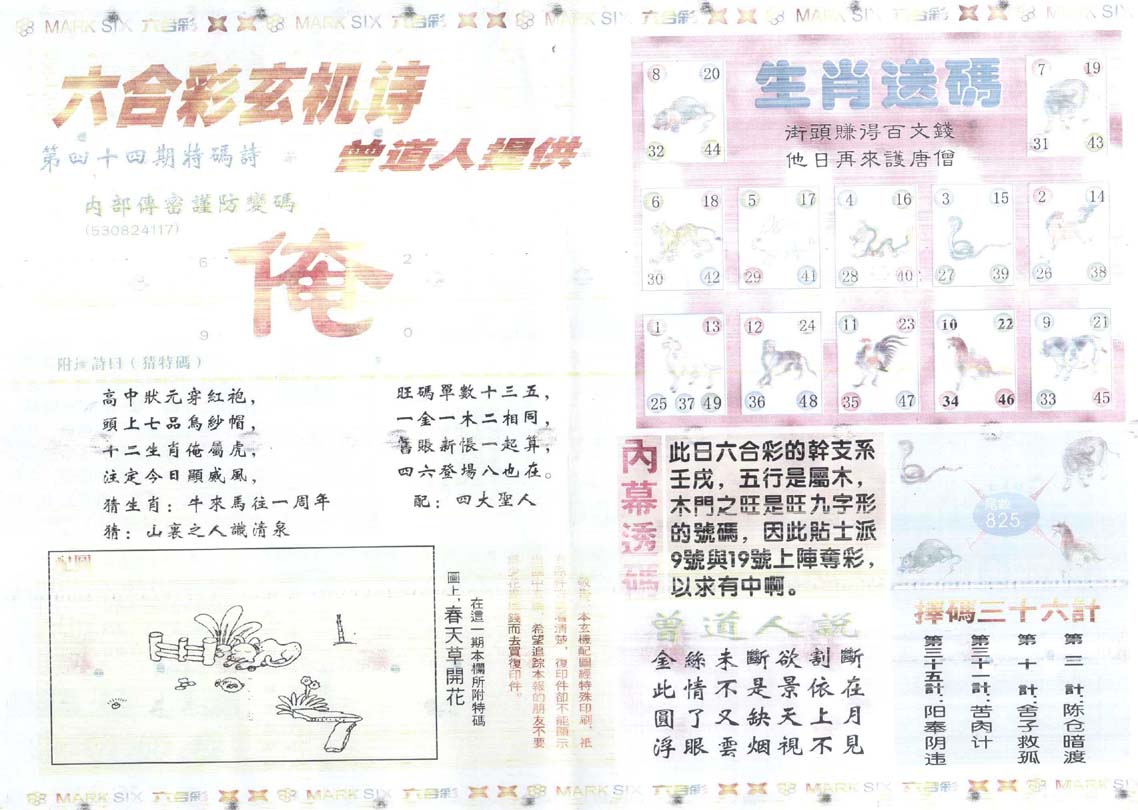 MARK SIX 六合彩 MARK SIX 六合彩 MARK SIX 六合彩 MARK SIX 六合彩 MARK SIX
六合彩玄机诗
第四十四期特碼詩
曾道人提供
内部傳密謹防變碼
(530824117)
6 2
俺
9 0
詩曰(猜特碼)
高中狀元穿紅袍,
頭上七品烏紗帽,
十二生肖俺屬虎,
注定今日顯威風,
猜生肖:牛來馬往一周年
猜:山裏之人識清泉
旺碼單數十三五,
一金一木二相同,
舊賬新悵一起算,
四六登場八也在。
配:四大聖人
圖上,春天草開花
在這一期本欄所附特碼
本玄機配圖經特殊印刷,祗
清楚,復印件卻不能顯示
希望追踪本報的朋友不要
錢而去買復印件。
生肖送碼
街頭賺得百文錢
他日再來護唐僧
8 20
32 44
7 19
31 43
6 18
30 42
5 17
29 41
4 16
28 40
3 15
27 39
2 14
26 38
1 13
25 37 49
12 24
36 48
11 23
35 47
10 22
34 46
9 21
33 45
内幕透碼
此日六合彩的幹支系
壬戌,五行是屬木,
木門之旺是旺九字形
的號碼,因此貼士派
9號與19號上陣奪彩,
以求有中啊。
825
曾道人說
金絲未斷欲割斷
此情不是景依在
圓了又缺天上月
浮眼雲烟視不見
擇碼三十六計
第二計:陈仓暗渡
第十計:舍子救孤
第三十一計:苦肉计
第三十五計:阳奉阴违
MARK SIX 六合彩 MARK SIX 六合彩 MARK SIX 六合彩 MARK SIX 六合彩 MARK SIX